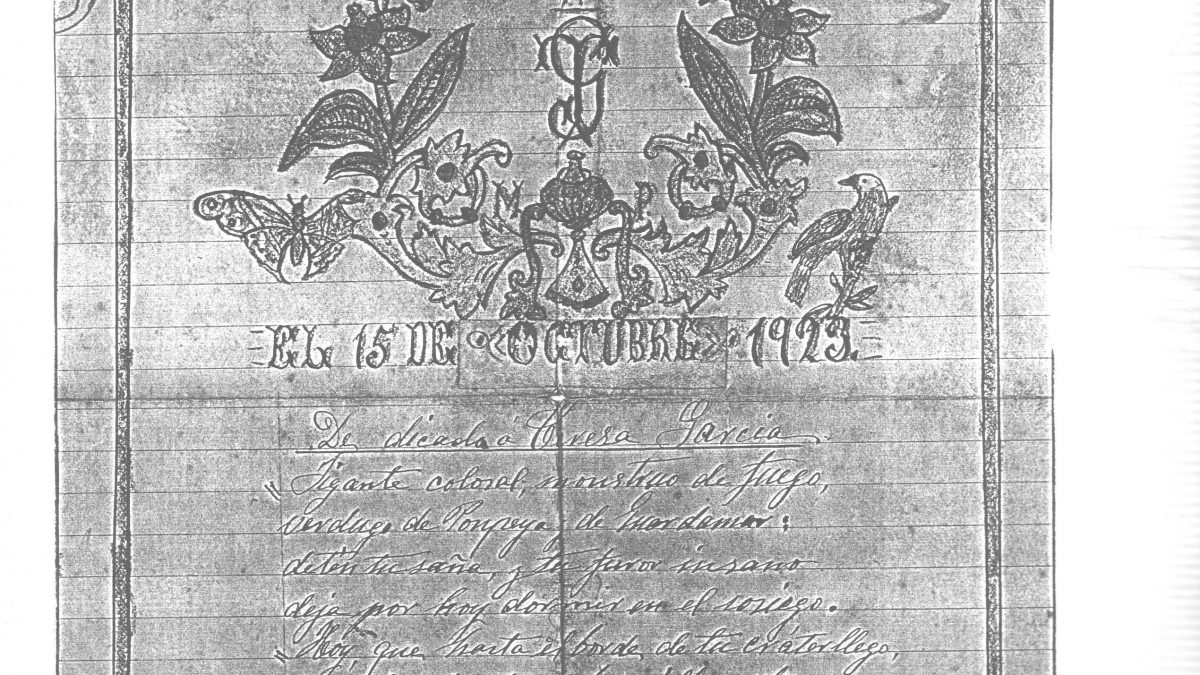 A
M P
EL 15 DE OCTUBRE 1923.
De dicada á Teresa Garcia.
„Jigante colosal, monstruo de fuego,
verdugo de Ponpeya, de Guardamar:
detén tu saña, y tu furor insano
deja por hoy dormir en el sosiego.
„Hoy, que hasta el borde de tu cráter llego,